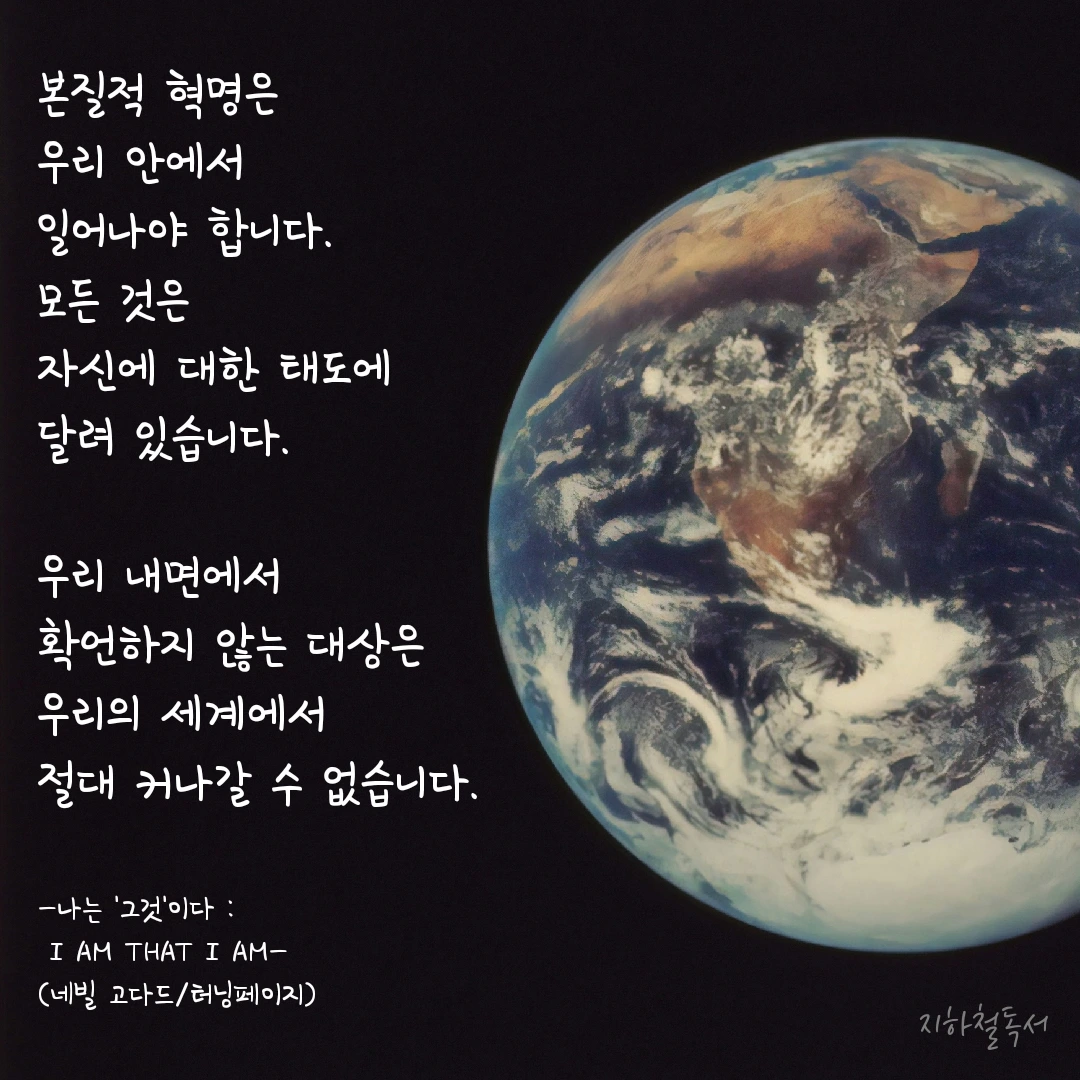 본질적 혁명은
우리 안에서
일어나야 합니다.
모든 것은
자신에 대한 태도에
달려 있습니다.
우리 내면에서
확언하지 않는 대상은
우리의 세계에서
절대 커나갈 수 없습니다.
-나는 '그것'이다 :
I AM THAT I AM-
(네빌 고다드/터닝페이지)
지하철독서